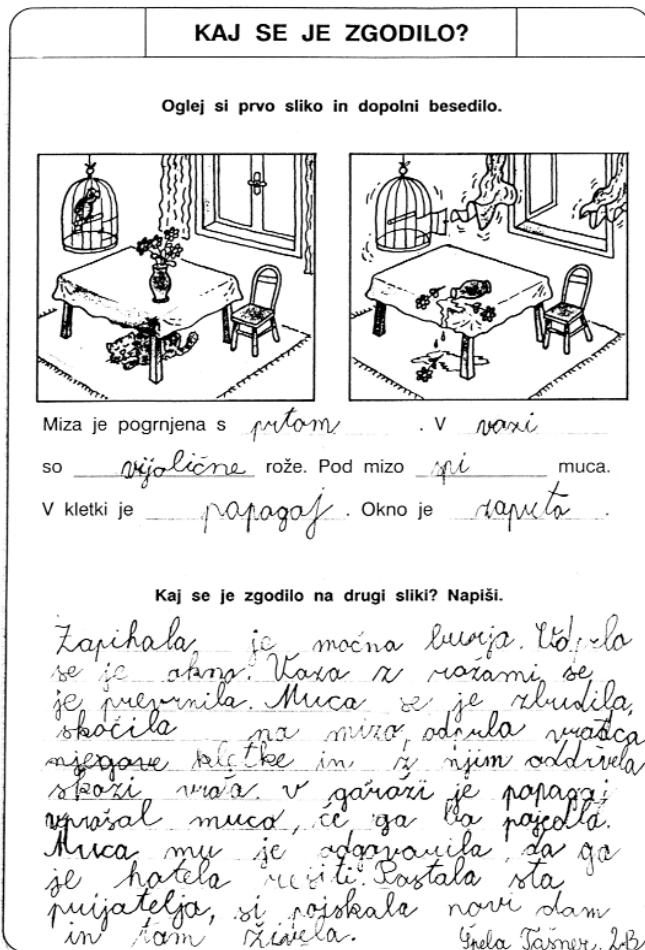 KAJ SE JE ZGODILO?
Oglej si prvo sliko in dopolni besedilo.
Miza je pogrnjena s prtom . V vazi
so vijolične rože. Pod mizo spi muca.
V kletki je papagaj . Okno je zaprto .
Kaj se je zgodilo na drugi sliki? Napiši.
Zapihala je močna burja. Odprlo
se je okno. Vaza z rožami se
je prevrnila. Muca se je zbudila,
skočila na mizo, odprla vratca
njegove kletke in z njim oddivela
skozi vrata. V garaži je papagaj
vprašal muco, če ga bo pojedla.
Muca mu je odgovorila, da ga
je hotela rešiti. Postala sta
prijatelja, si poiskala novi dom
in tam živela. Špela Tašner, 2.B